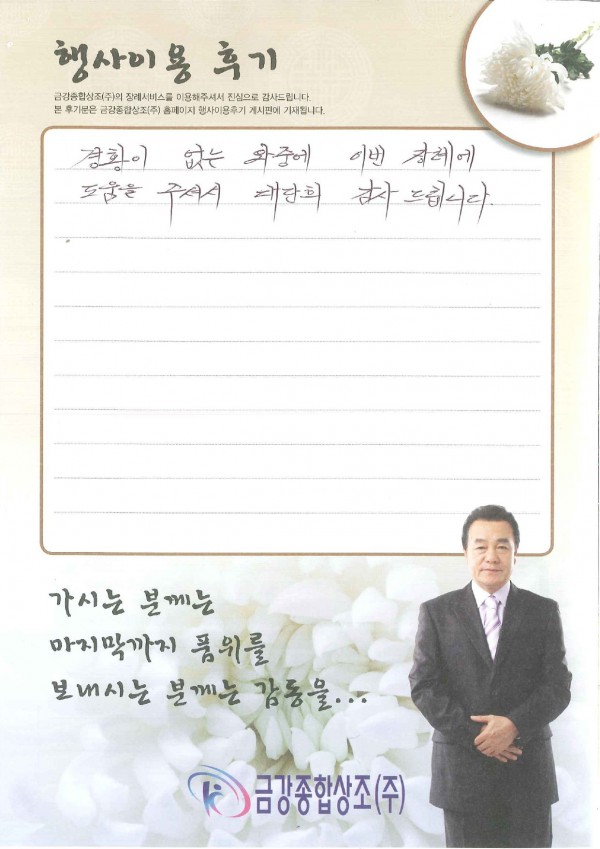 행사이용 후기
금강종합상조(주)의 장례서비스를 이용해주셔서 진심으로 감사드립니다.
본 후기분은 금강종합상조(주) 홈페이지 행사이용후기 게시판에 기재됩니다.
경황이 없는 와중에 이번 장례에
도움을 주셔서 대단희 감사 드립니다.
가시는 분께는
마지막까지 품위를
보내시는 분께는 감동을...
금강종합상조(주)